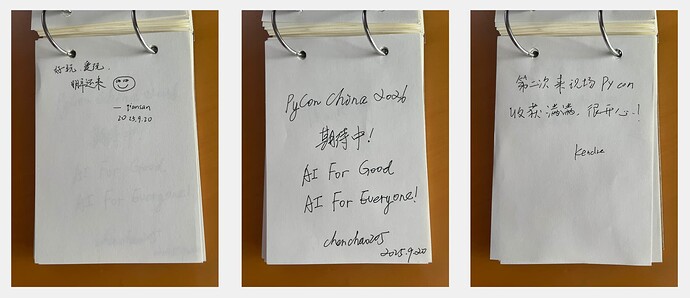 好玩、爱玩、
明年还来
2025.9.20
PyCon China 2026
期待中!
AI For Good
AI For Everyone!
chenchao205
2025.9.20
第二次来现场 Py con
收获满满,很开心~!